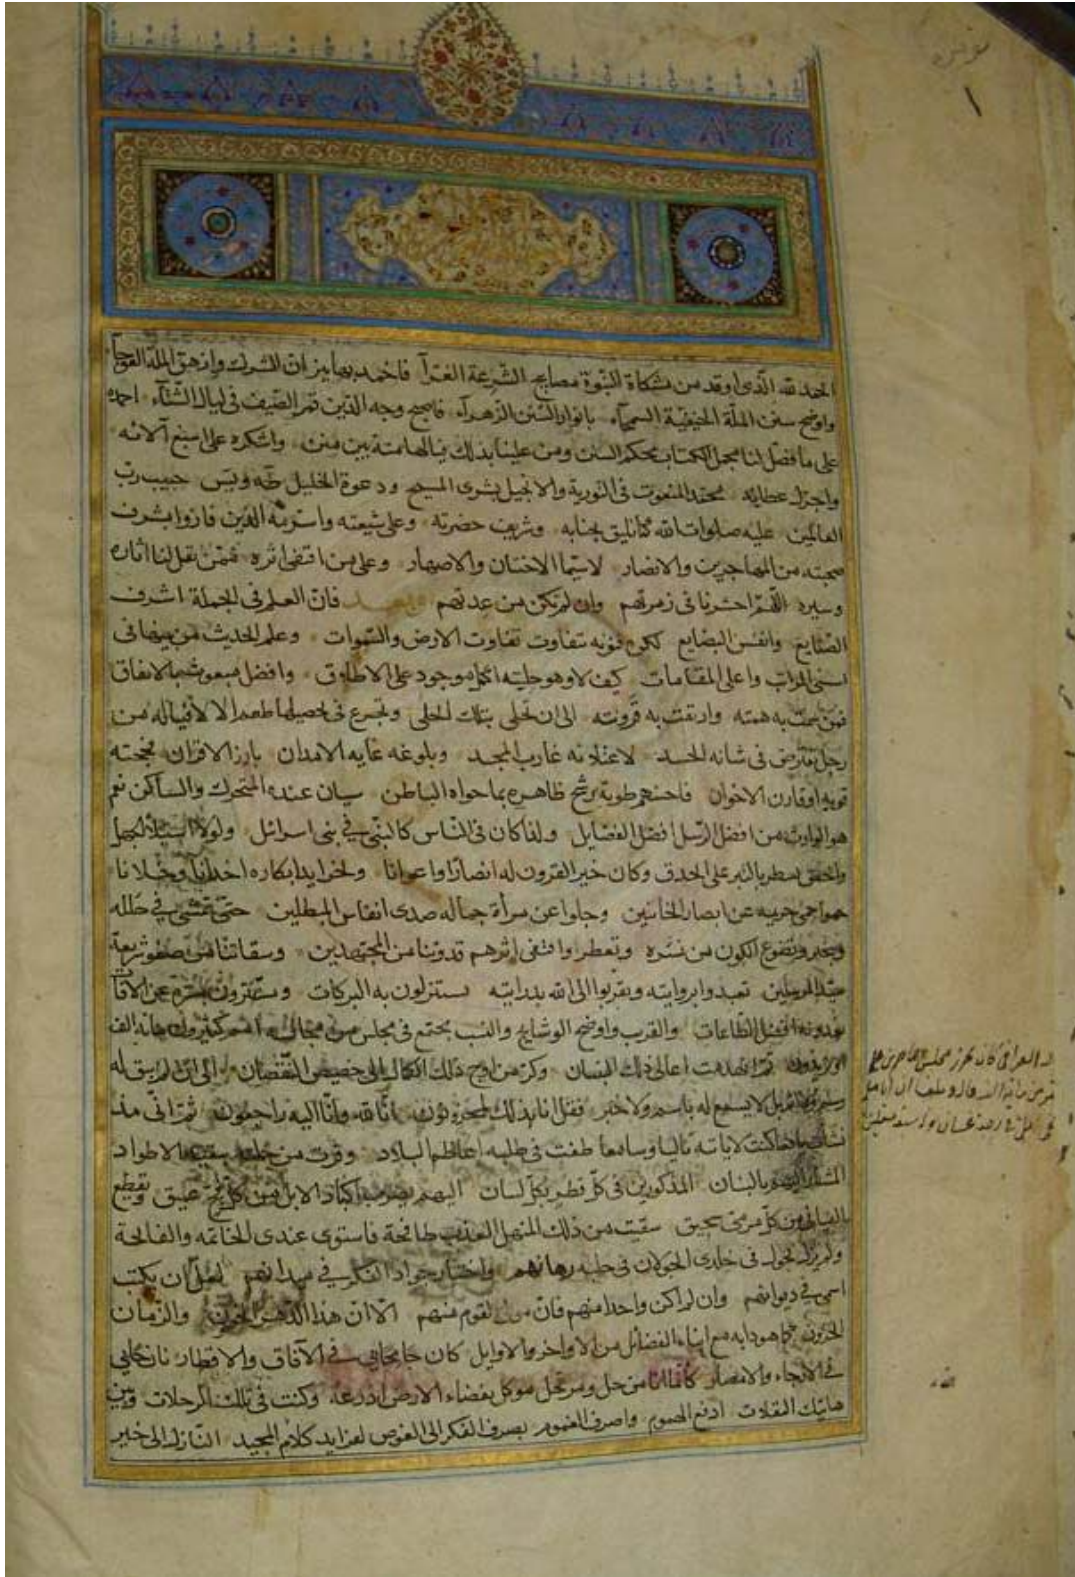 الحمد لله الذي اوقد من مشكاة النبوة مصابيح الشريعة الغرآ فاخمد بها نيران الشرك وازهق الملة العوجآ
واوضح سنن الملة الحنيفية السمحآء بانوار السنن الزهرآء فاصبح وجه الدين قمر الصيف في ليال الشتآء احمده
على ما فصل لنا مجمل الكتاب بمحكم السنن ومن علينا بذلك فيالها منة بين منن واشكره على اسبغ آلائه
واجزل عطائه محمد المنعوت في التورية والانجيل بشرى المسيح ودعوة الخليل طه ويس حبيب رب
العالمين عليه صلوات الله كما تليق بجنابه وشريف حضرته وعلى شيعته واسرته الذين فازوا بشرف
صحبته من المهاجرين والانصار لاسيما الاختان والاصهار وعلى من اقتفى اثره فمن نقل لنا اثاره
وسيره اللهم احشرنا في زمرتهم وان لم نكن من عدتهم وبعد فان العلم في الجملة اشرف
الصنايع وانفس البضايع لكن فنونه تتفاوت تفاوت الارض والسموات وعلم الحديث من بينها في
اسنى المراتب واعلى المقامات كيف لا وهو حلية اكمل موجود على الاطلاق وافضل مبعوث بالاتفاق
فمن سمت به همته وارتقت به قرونته الى ان تحلى بتلك الحلى وتجرع في تحصيلها طعم الالا فياله من
رجل تقرض في شانه الحسد لاعتلائه غارب المجد وبلوغه غاية الامدان بارز الاقران فحجته
قوية او قارن الاخوان فاحسنهم طوية يرشح ظاهره بما حواه الباطن سيان عنده المتحرك والساكن نعم
هو الوارث من افضل الرسل افضل الفضايل ولذا كان في الناس كالنبي في بني اسرائل ولولا
بسطر بالتبر على الحدق وكان خير القرون له انصارا واعوانا ولخرايد ابكاره اخدانا وخلانا
حموا حمى حريمه عن ابصار الخائنين وجلوا عن مرأة جماله صدى انفاس المبطلين حتى تمشى في حلله
وتضوع الكون من نشره وتعطر واقتفى اثرهم قدوتنا من المجتهدين وسقاتنا من صفو شريعة
سيد المرسلين تعبدوا بروايته وتقربوا الى الله بدرايته يستنزلون به البركات
افضل الطاعات والقرب واوضح الوشايج والنسب يجتمع في مجلس من مجالسه
اعالي ذلك البنيان وكر من اوج ذلك الكمال الى حضيض النقصان الى ان لم يبق له
بل لا يسمع له باسم ولا خبر فقل انا بذلك لمحزونون انا لله وانا اليه راجعون ثم اني مذ
كنت لاياته تاليا وسامعا طفت في طلبه اعاظم البلاد
المشار اليهم بالبنان المذكورين في كل قطر بكل لسان اليهم يضرب اكباد الابل من كل فج عميق ويقطع
الفيافي من كل مرمى سحيق سقيت من ذلك المنهل العذب طافحة فاستوى عندي الخاتمة والفاتحة
ولم يزل يجول في خلدي الجولان في حلبة رهانهم واختبار جواد الفكر في ميدانهم لعل ان يكتب
اسمي في ديوانهم وان لم اكن واحدا منهم فان مولى القوم منهم الا ان هذا الدهر الخؤن والزمان
الحرون كما هو دابه مع ابناء الفضائل من الاواخر والاوايل كان في الآفاق والاقطار
في الارجاء والامصار كانما انا من حل ومرتحل موكل بفضاء الارض اذرعه وكنت في تلك الرحلات وبين
هاتيك النقلات ادفع الهموم واصرف الغموم بصرف الفكر الى الغوص لفرايد كلام المجيد النازل الى خير